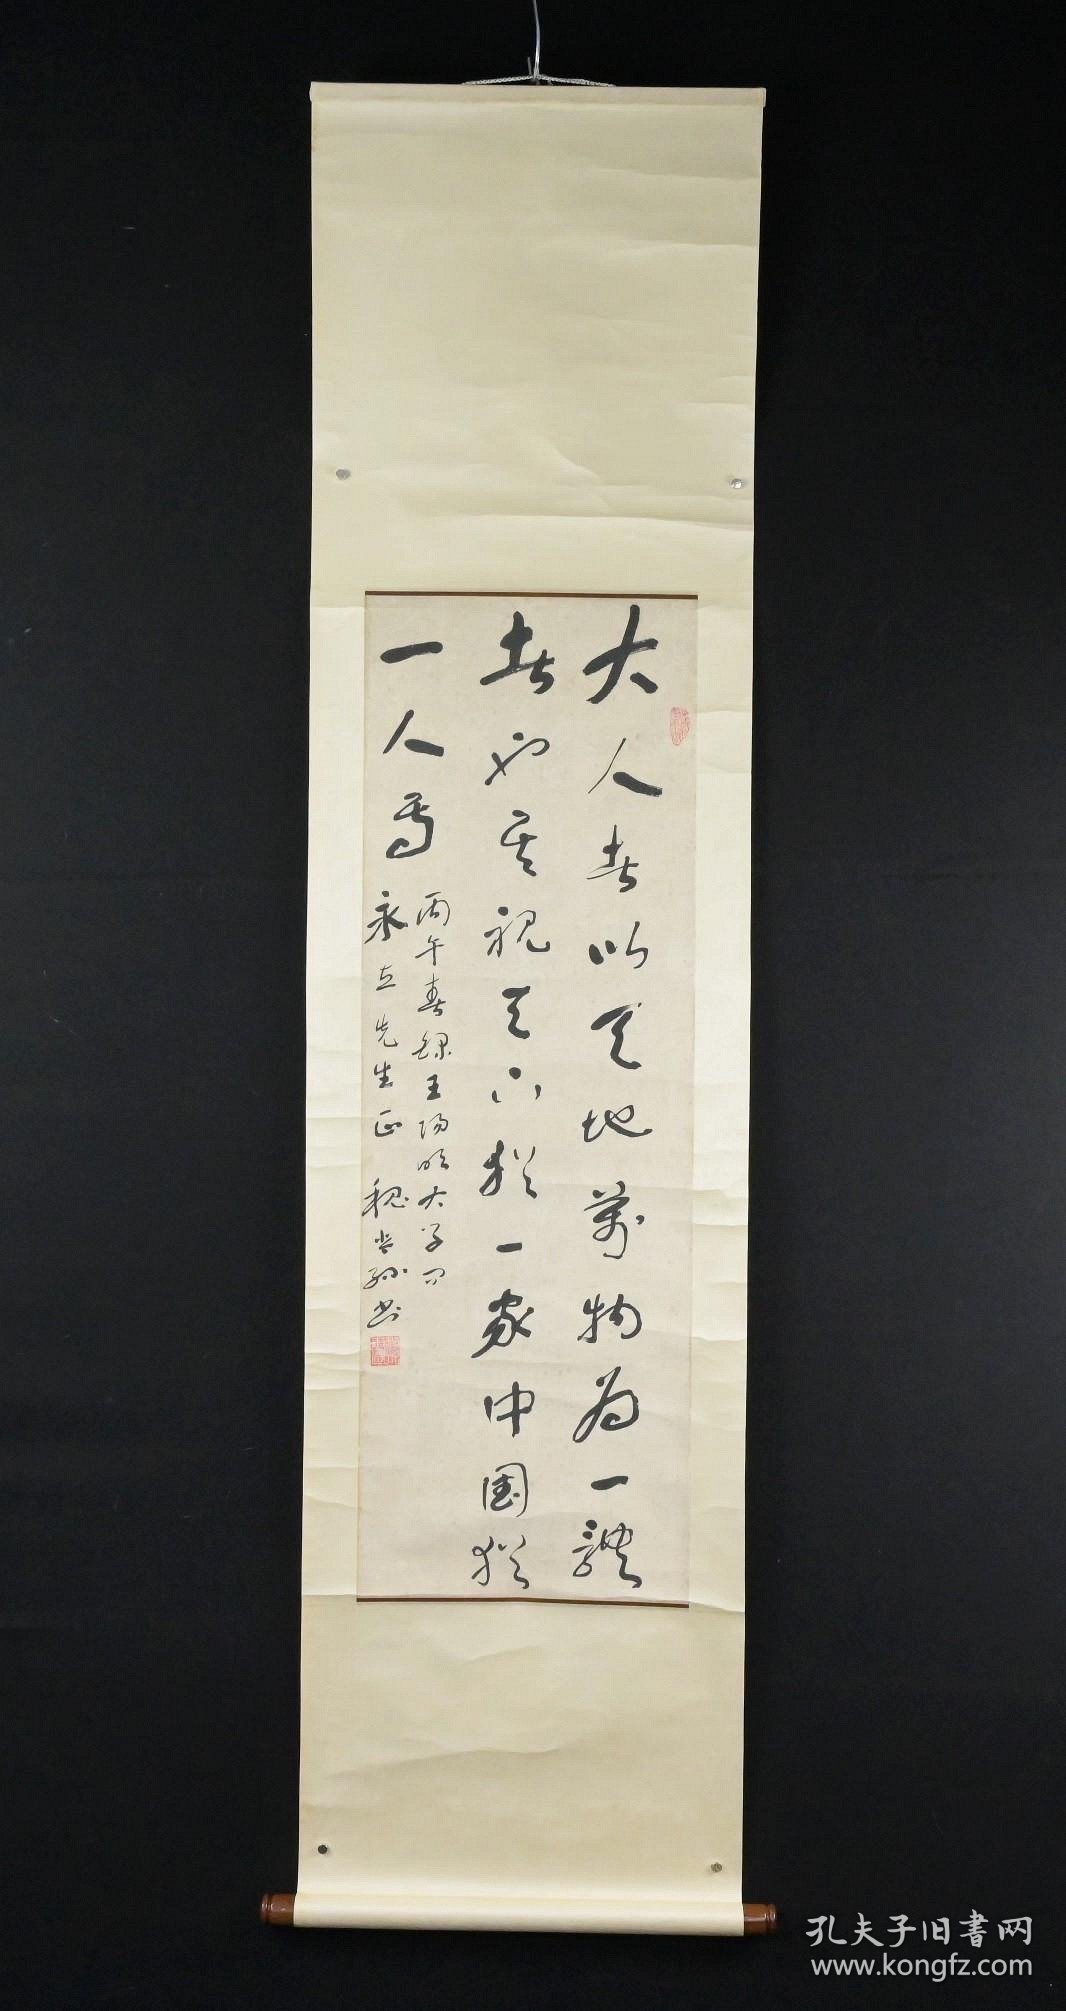 大人者以天地萬物為一體
者也其視天下猶一家中國猶
一人焉
丙午春錄王陽明大學問
永立先生正 魏 孫書
孔夫子旧書网
www.kongfz.com